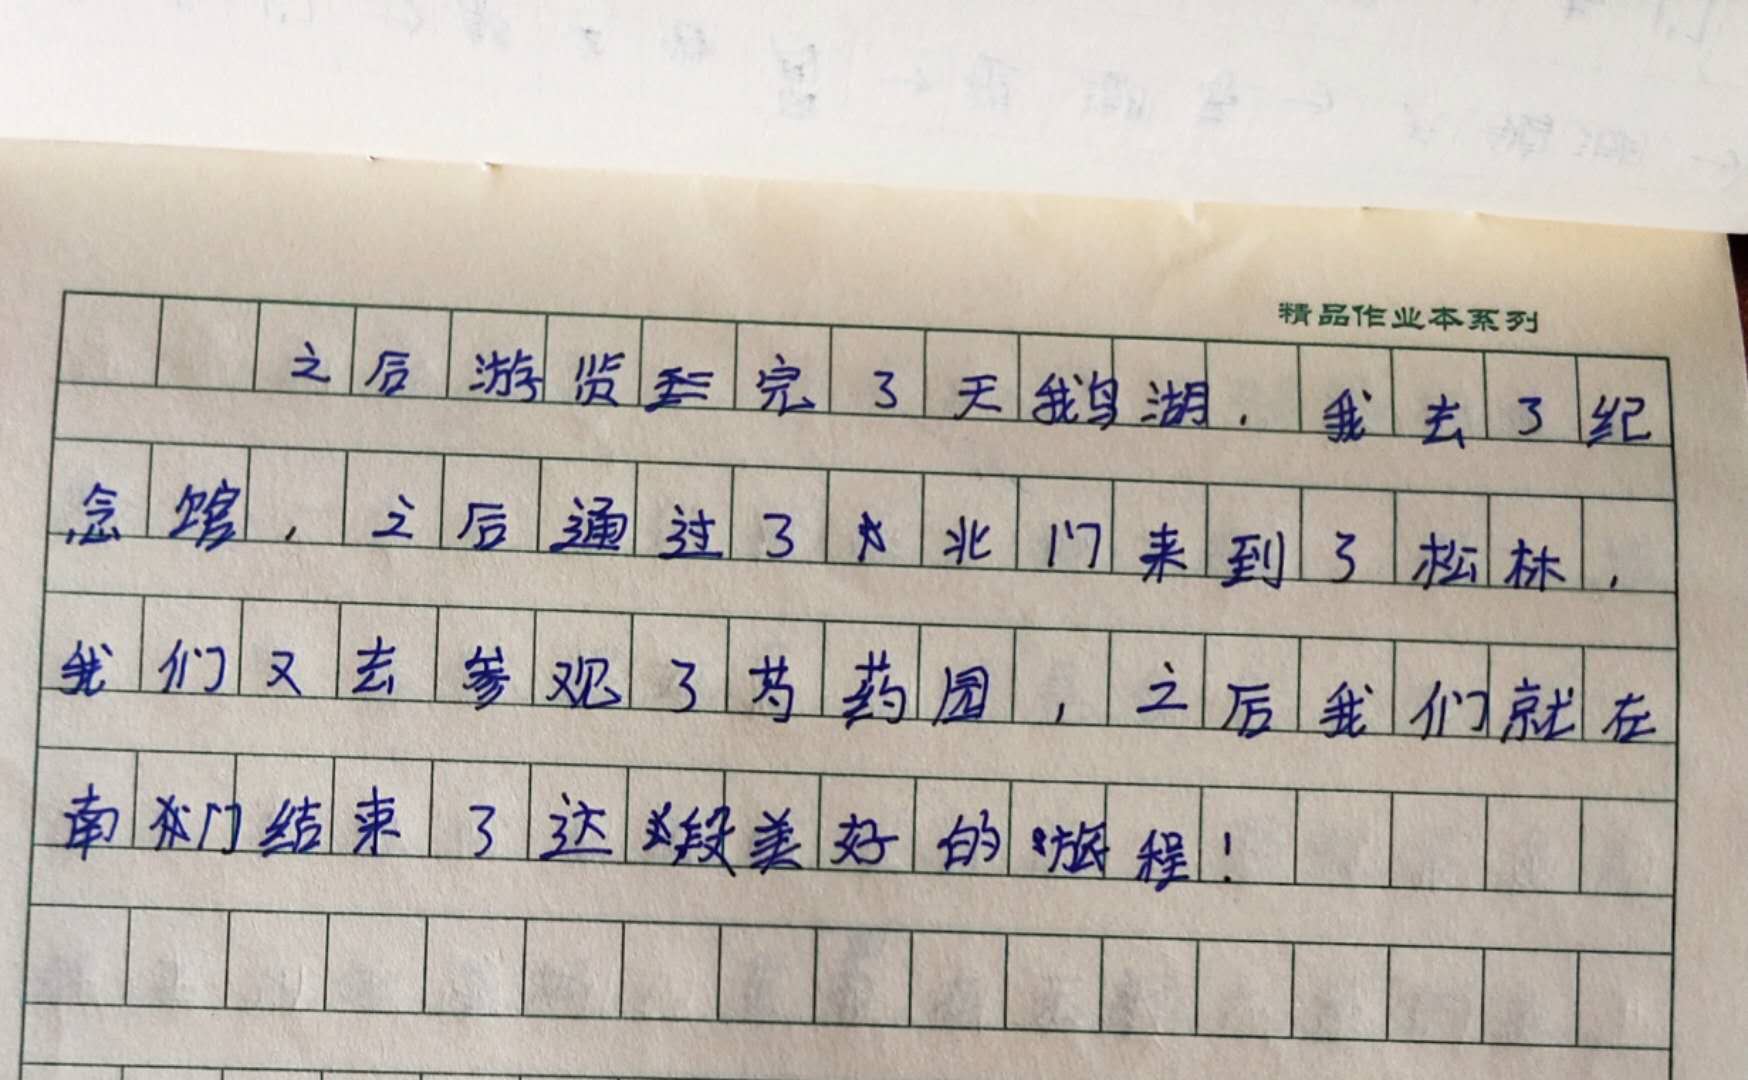 精品作业本系列
之后游览完了天鹅湖，我去了纪
念馆，之后通过了北门来到了松林，
我们又去参观了芍药园，之后我们就在
南门结束了这段美好的旅程！